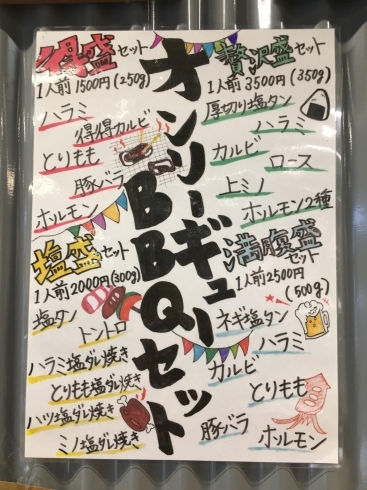 オンリーギュー
BBQセット
得盛セット
1人前1500円(250g)
ハラミ
得得カルビ
とりもも
豚バラ
ホルモン
贅沢盛セット
1人前3500円(350g)
厚切り塩タン
ハラミ
カルビ
ロース
上ミノ
ホルモン2種
塩盛セット
1人前2000円(300g)
塩タン
トントロ
ハラミ塩ダレ焼き
とりもも塩ダレ焼き
ハツ塩ダレ焼き
ミノ塩ダレ焼き
満腹盛セット
1人前2500円
(500g)
ネギ塩タン
ハラミ
カルビ
とりもも
豚バラ
ホルモン